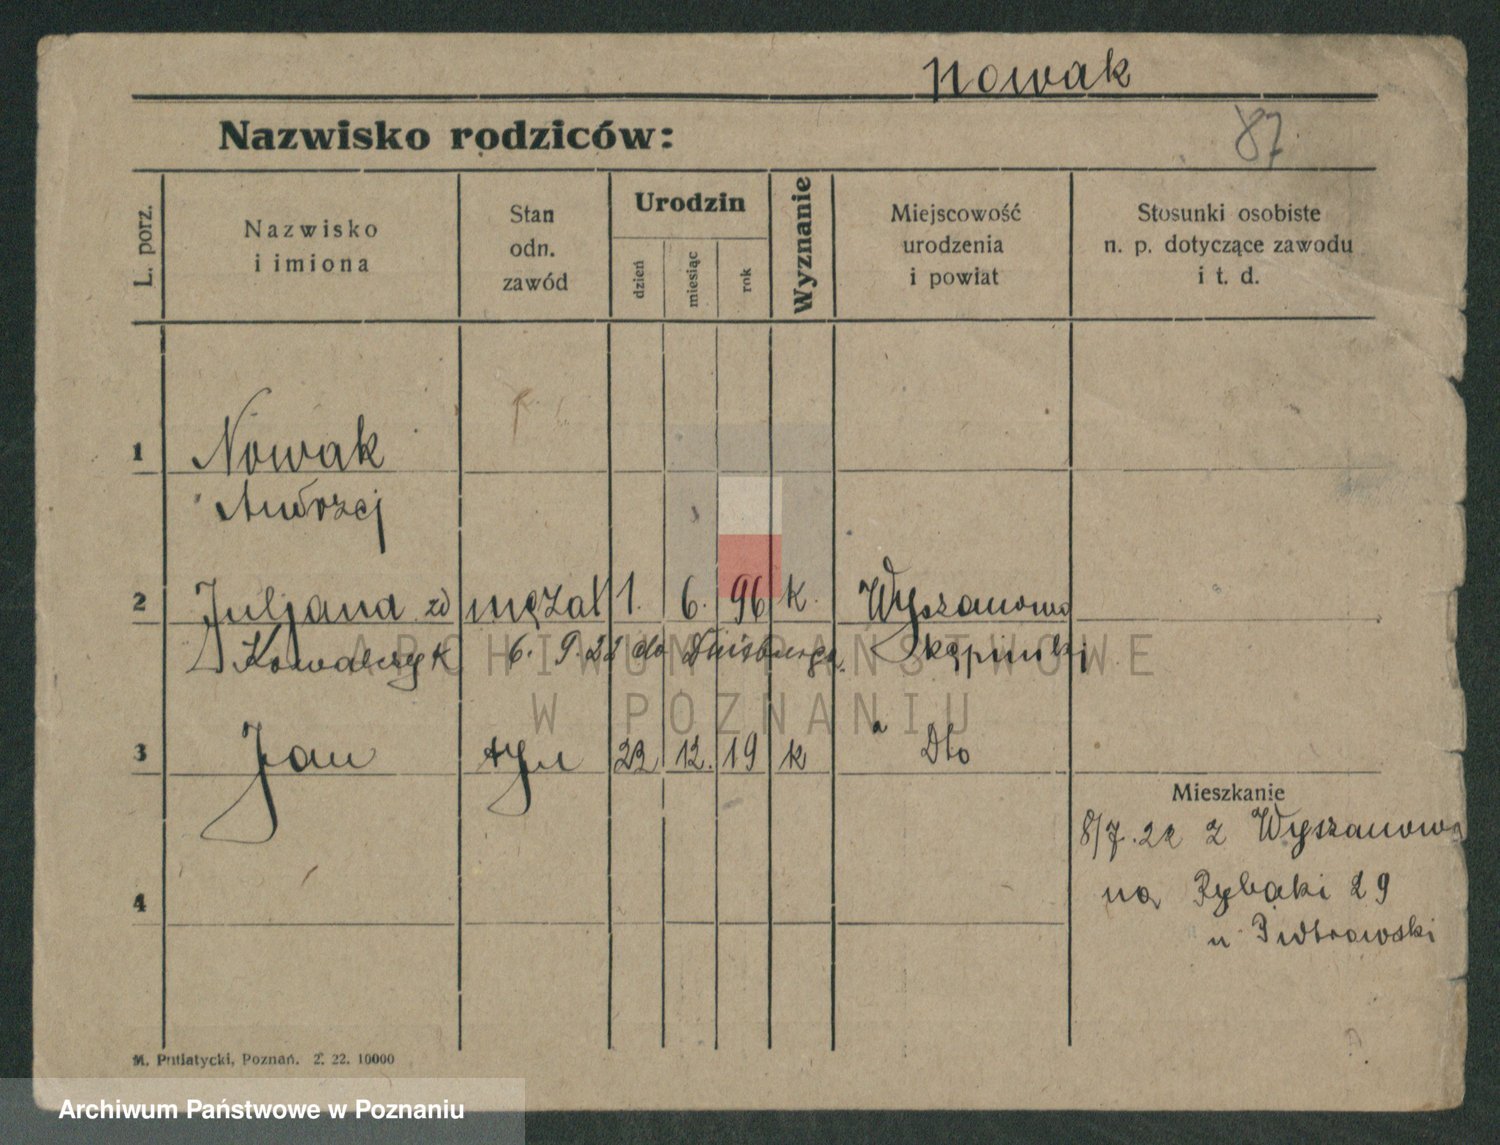 Nowak
Nazwisko rodziców:
87
L. porz.
Nazwisko
i imiona
Stan
odn.
zawód
Urodzin
dzień
miesiąc
rok
Wyznanie
Miejscowość
urodzenia
i powiat
Stosunki osobiste
n. p. dotyczące zawodu
i t. d.
1 Nowak
Andrzej
2 Juljana zd mężat 1. 6. 96 k. Wyszanowo
Kowalczyk 6. 9. 22 do Duisburga. kępiński
3 Jan syn 23 12. 19 k Dto
Mieszkanie
8/7. 22 z Wyszanowa
na Rybaki 29
u Piotrowski
4
M. Putiatycki, Poznań. 2. 22. 10000
ARCHIWUM PAŃSTWOWE
W POZNANIU
Archiwum Państwowe w Poznaniu